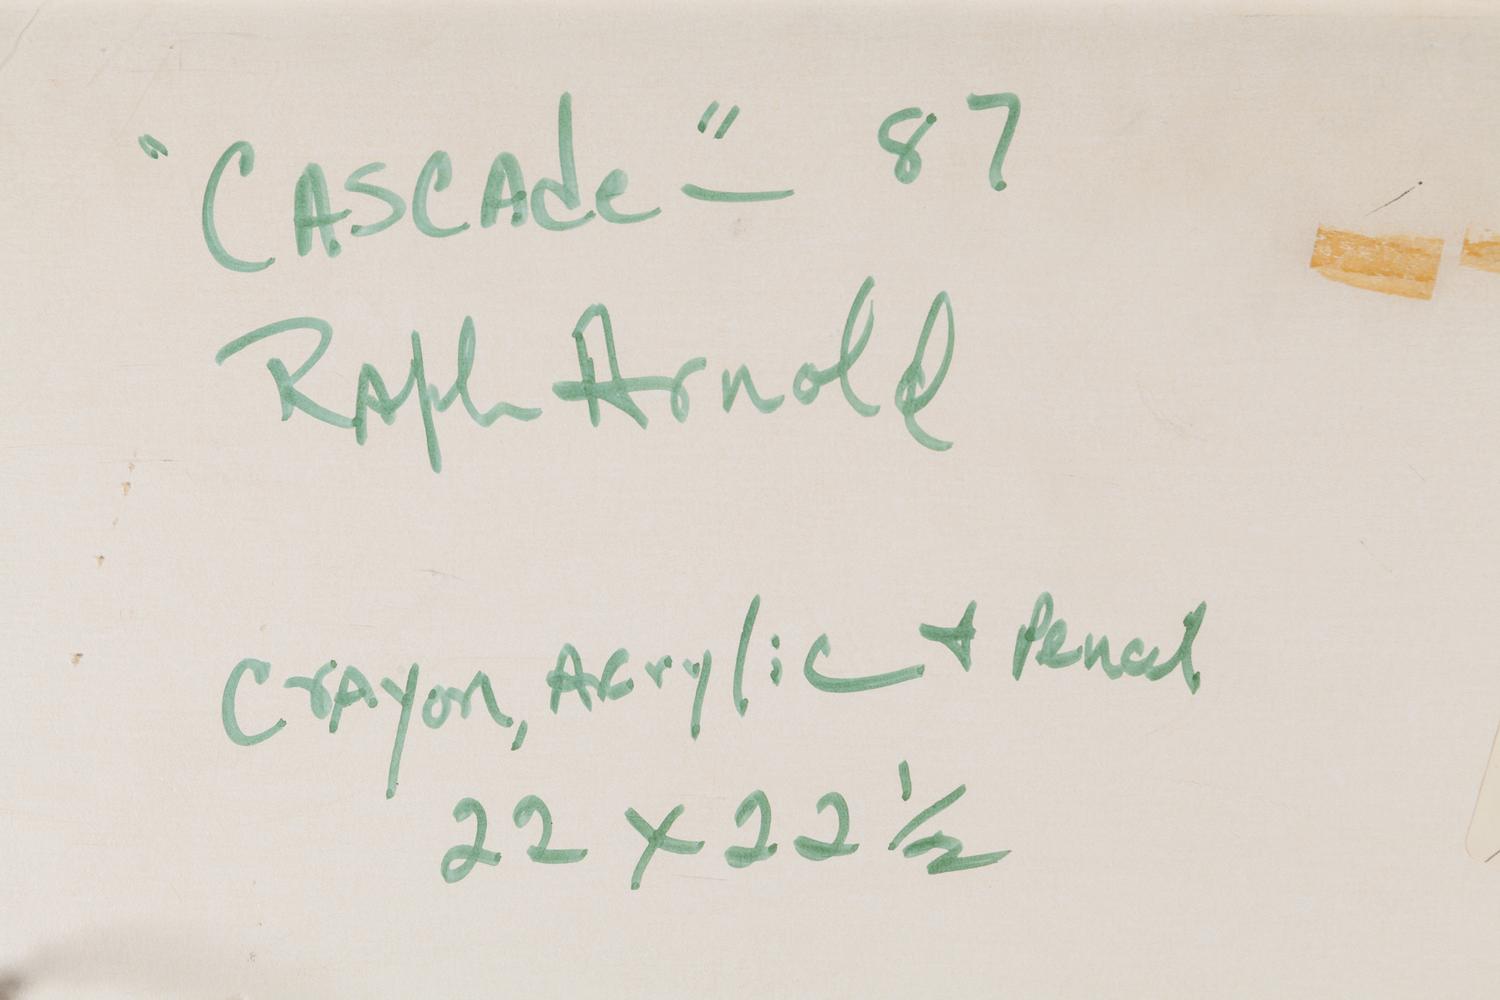 "CASCAde" — 87
Ralph Arnold
Crayon, Acrylic & Pencil
22 x 22 1/2